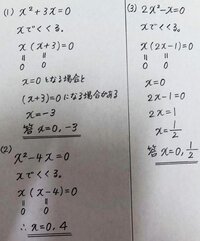 (1) x²+3x=0
xでくくる。
x(x+3)=0
॥ ॥
0 0
x=0になる場合と
(x+3)=0になる場合がある
x=-3
答 x=0, -3
(2)
x²-4x=0
xでくくる。
x(x-4)=0
॥ ॥
0 0
∴x=0, 4
(3) 2x²-x=0
xでくくる。
x(2x-1)=0
॥ ॥
0 0
x=0
2x-1=0
2x=1
x=1/2
答 x=0, 1/2